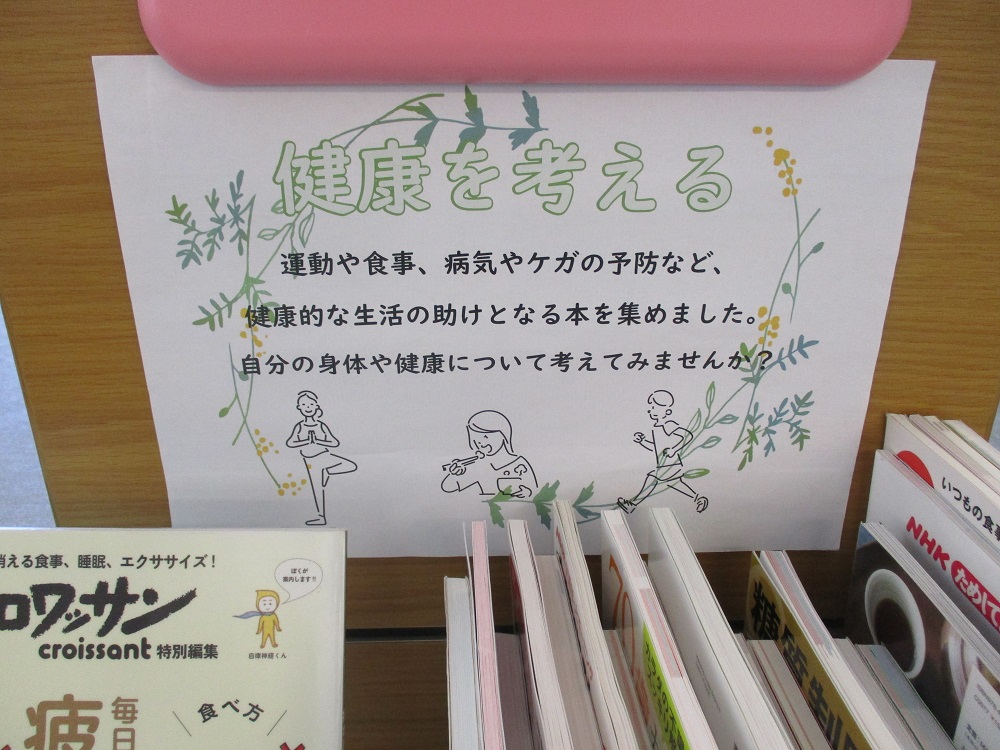 健康を考える
運動や食事、病気やケガの予防など、
健康的な生活の助けとなる本を集めました。
自分の身体や健康について考えてみませんか？
消える食事、睡眠、エクササイズ！
ロワッサン
croissant 特別編集
ぼくが
案内します!!
自律神経くん
毎日
疲
食べ方
糖質制
いつもの食事
NHK
ためして